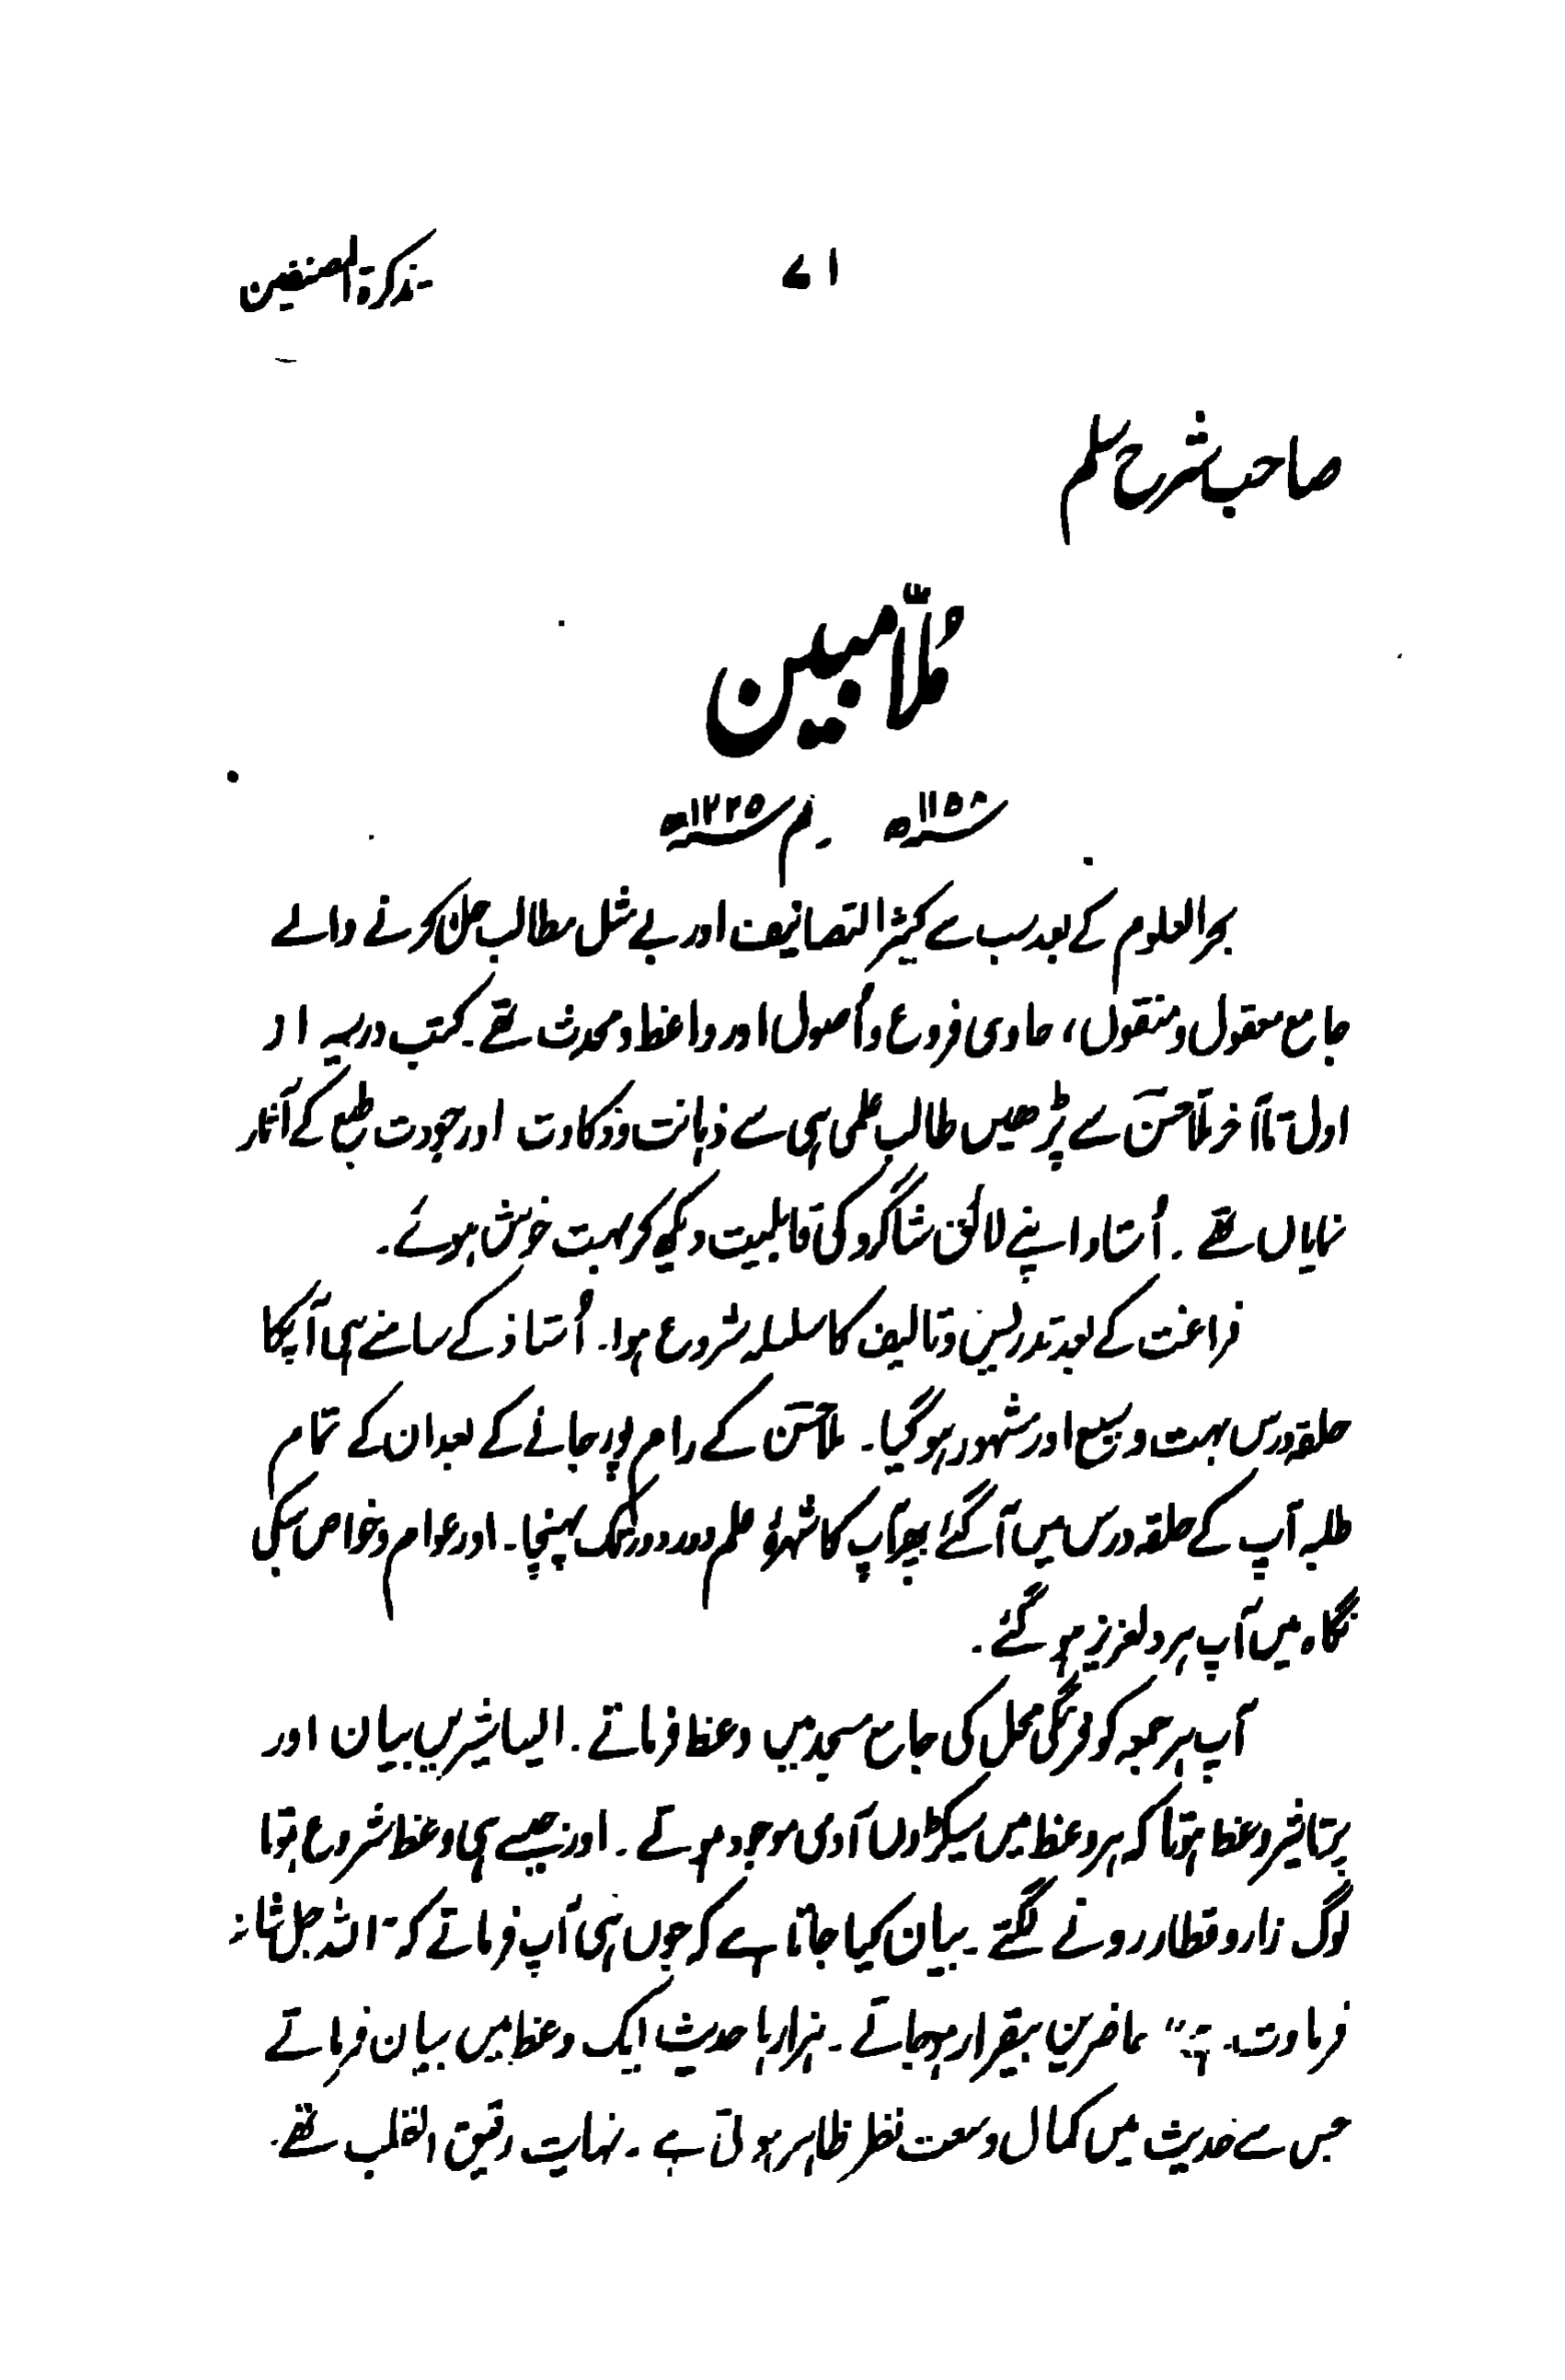 تذکرۃ المصنفین
۷۱
صاحب شرح سلم
مُلّا مبین
۱۱۵۰ھ م ۱۲۲۵ھ
بحر العلوم کے بعد سب سے کثیر التصانیف اور بے مثل مطالب حل کرنے والے
جامع معقول و منقول، حاوی فروع و اُصول اور واعظ و محدث تھے۔ کتب درسیہ از
اول تا آخر ملّا حسن سے پڑھیں طالب علمی ہی سے ذہانت و ذکاوت اور جودت طبع کے آثار
نمایاں تھے۔ اُستاد اپنے لائق شاگرد کی قابلیت دیکھ کر بہت خوش ہوئے۔
فراغت کے بعد تدریس و تالیف کا سلسلہ شروع ہوا۔ اُستاذ کے سامنے ہی آپکا
حلقہ درس بہت وسیع اور مشہور ہوگیا۔ ملا حسن کے رام پور جانے کے بعد ان کے تمام
طلبہ آپ کے حلقہ درس میں آگئے پھر آپ کا شہرۂ علم دور دور تک پہنچا۔ اور عوام و خواص سبکی
نگاہ میں آپ ہر دلعزیز ہوگئے۔
آپ ہر جمعہ کو فرنگی محل کی جامع مسجد میں وعظ فرماتے۔ ایسا شیریں بیان اور
پرتاثیر وعظ ہوتا کہ ہر وعظ میں سیکڑوں آدمی موجود ہوتے۔ اور جیسے ہی وعظ شروع ہوتا
لوگ زار و قطار رونے لگتے۔ بیان کیا جاتا ہے کہ جوں ہی آپ فرماتے کہ "اللہ جل شانہ
فرماوت ہے" حاضرین بیقرار ہوجاتے۔ ہزارہا حدیث ایک وعظ میں بیان فرماتے
جس سے حدیث میں کمال وسعت نظر ظاہر ہوتی ہے۔ نہایت رقیق القلب تھے۔